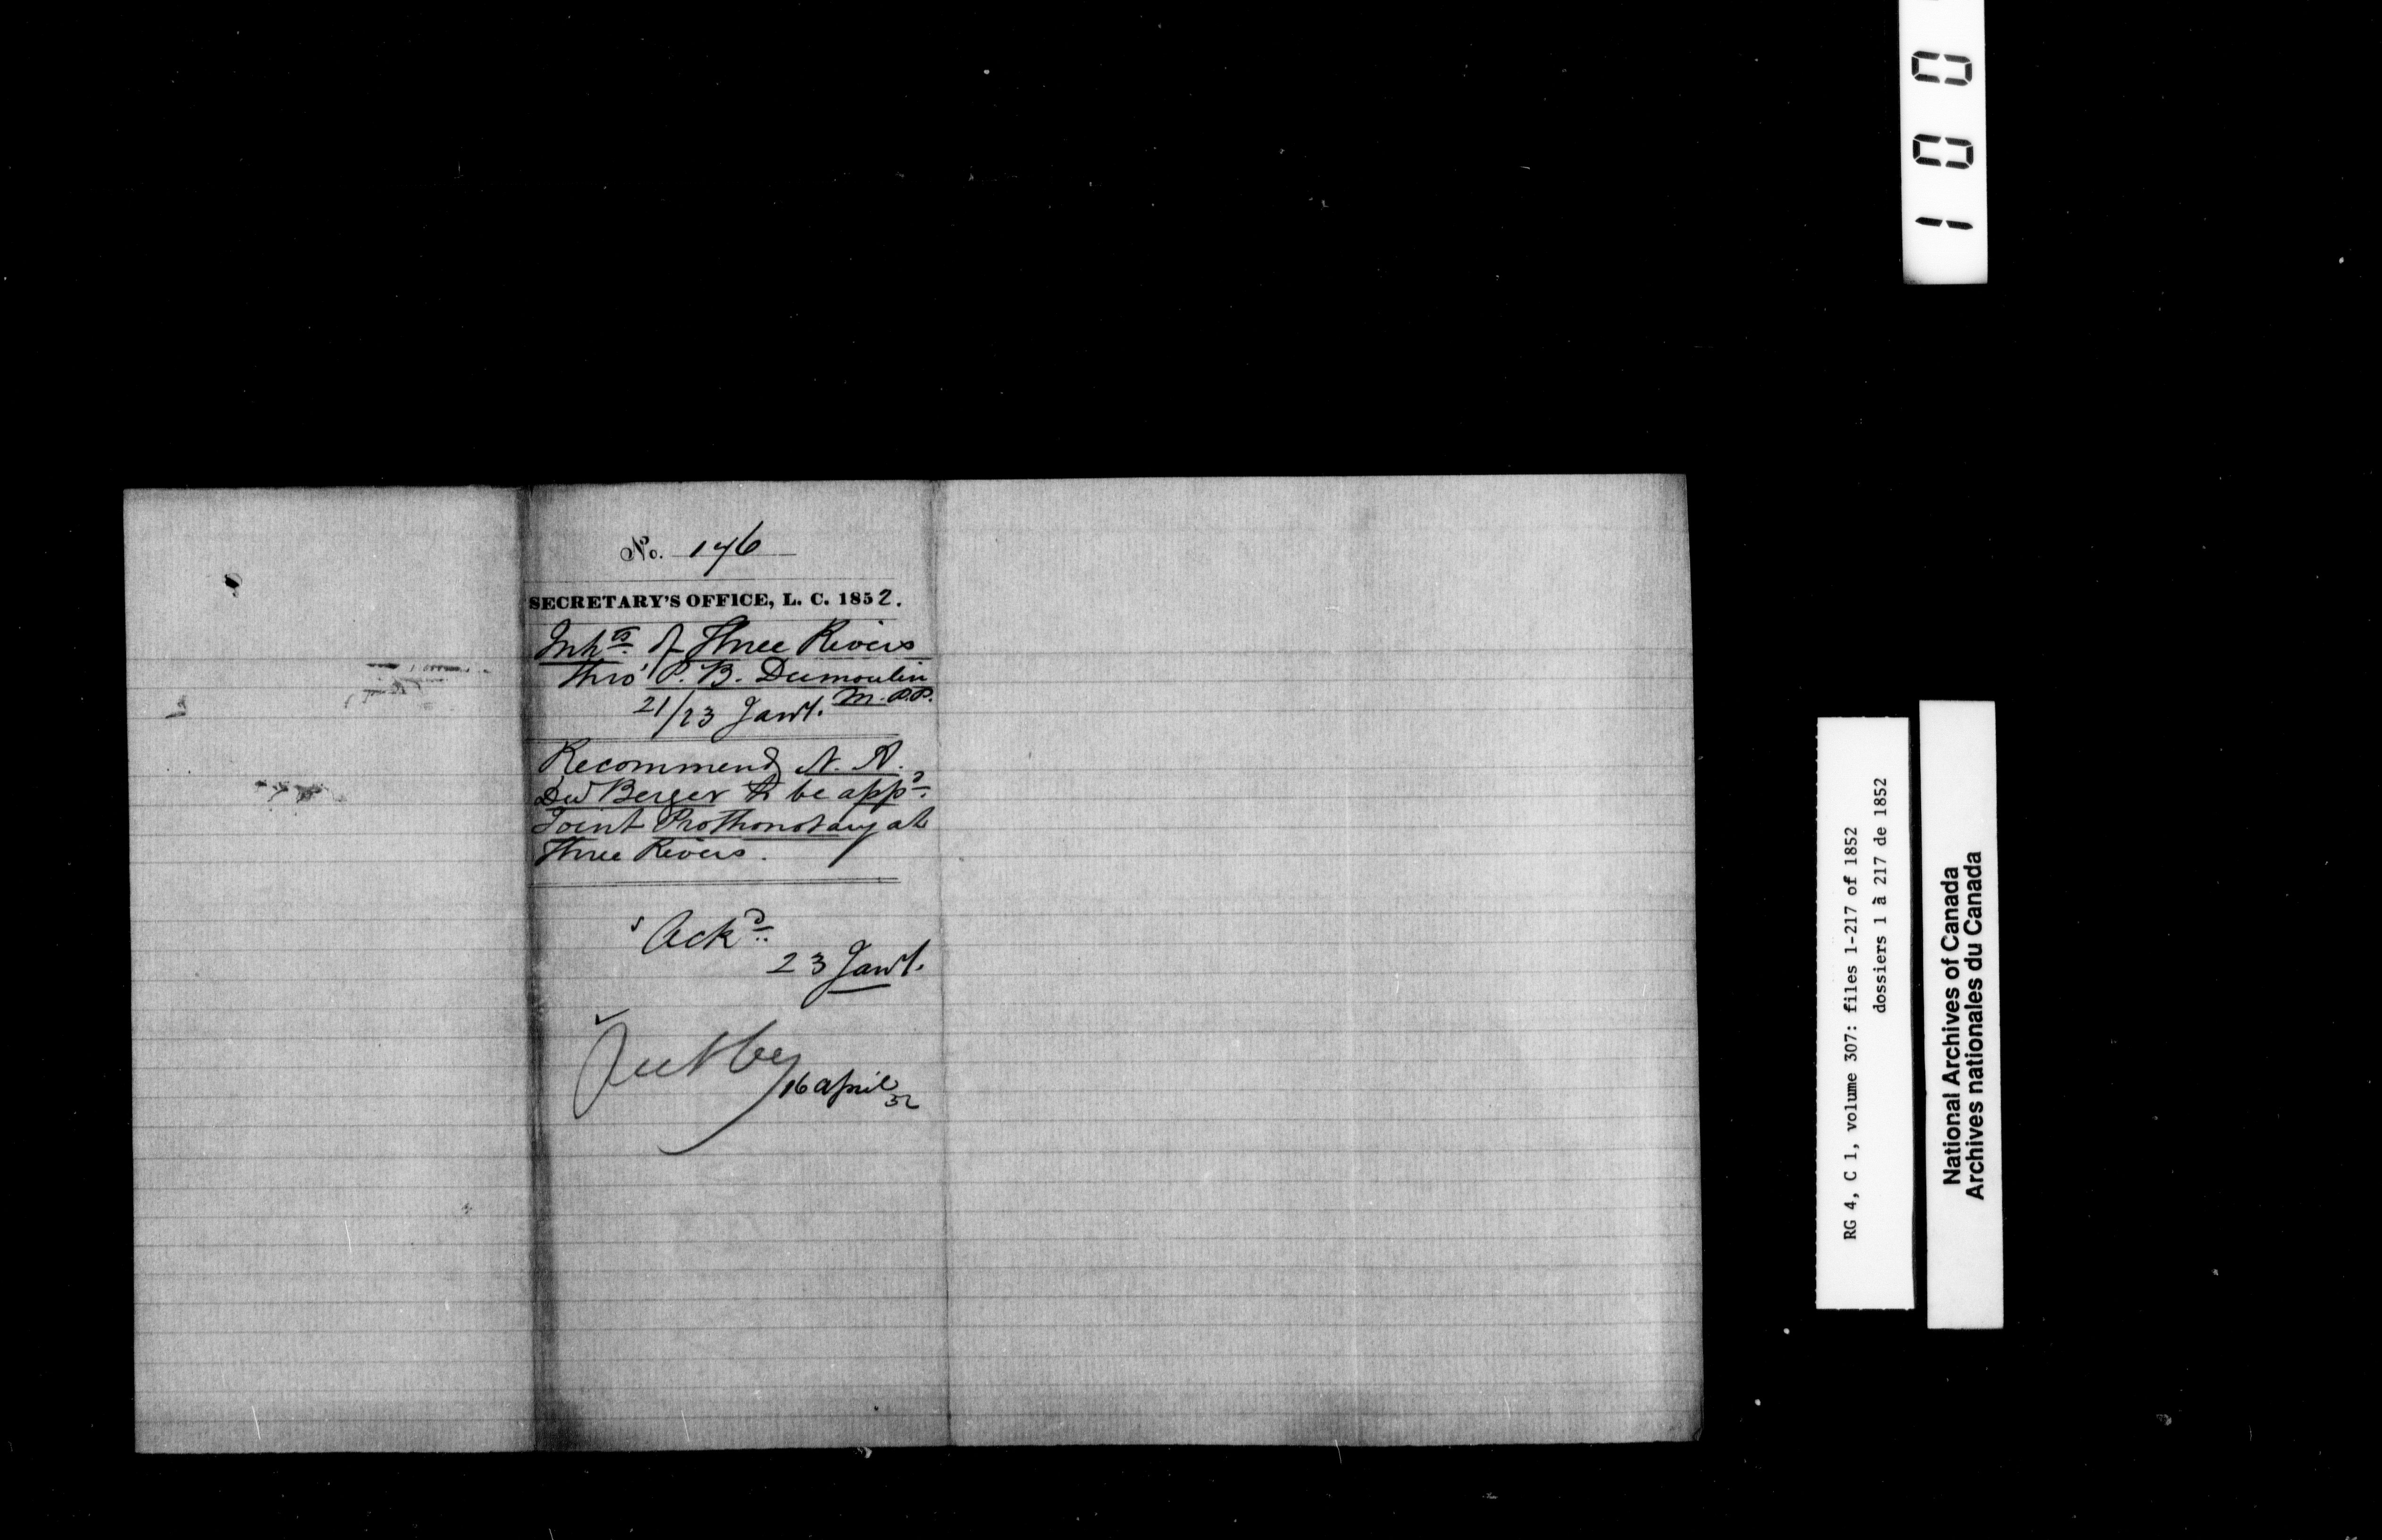 No. 146
SECRETARY'S OFFICE, L. C. 1852.
Inhts. of Three Rivers
thro' P. B. Dumoulin
M.P.P.
21/23 Jany.
Recommend N. A.
Du Berger to be appd.
Joint Prothonotary at
Three Rivers.
Ackd.
23 Jany.
16 April
52
1 0 0
RG 4, C 1, volume 307: files 1-217 of 1852
dossiers 1 à 217 de 1852
National Archives of Canada
Archives nationales du Canada